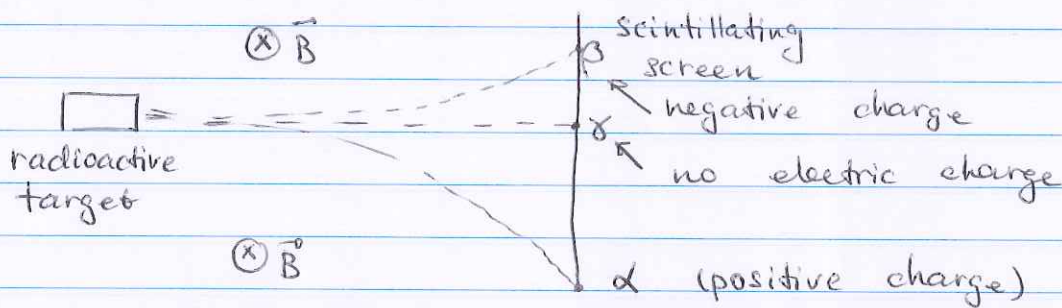 ⊗ B⃗
scintillating
screen
β
negative charge
γ
no electric charge
radioactive
target
⊗ B⃗
α (positive charge)